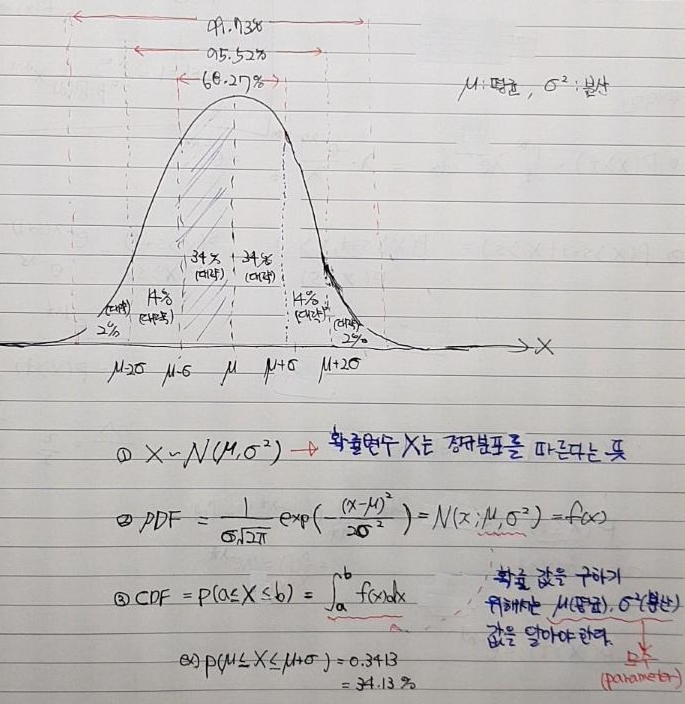 99.73%
95.52%
68.27%
μ:평균, σ² :분산
34% 34%
(대략) (대략)
14% 14%
(대략) (대략)
(대략) (대략)
2% 2%
μ-2σ μ-σ μ μ+σ μ+2σ X
① X~N(μ,σ²) → 확률변수 X는 정규분포를 따른다는 뜻
② PDF = 1/(σ√2π) exp(-(x-μ)²/2σ²) = N(x;μ,σ²) = f(x)
③ CDF = P(a≤X≤b) = ∫ₐᵇ f(x)dx
확률 값을 구하기
위해서는 μ(평균), σ²(분산)
값을 알아야 한다.
모수
(parameter)
ex) P(μ≤X≤μ+σ) = 0.3413
= 34.13%